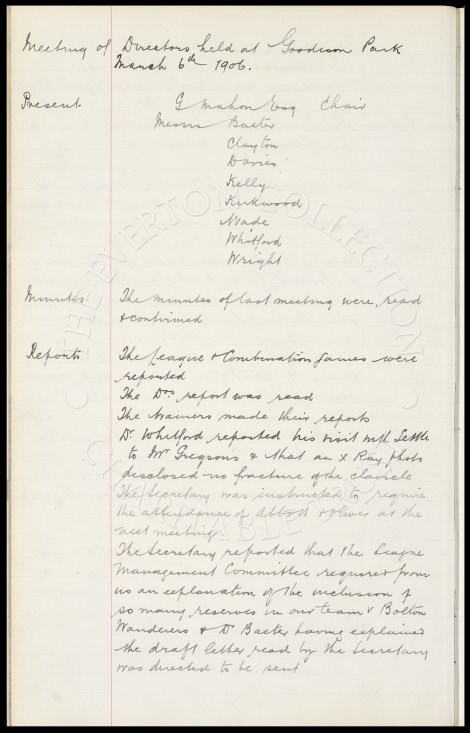 Meeting of Directors held at Goodison Park
March 6th 1906.
Present G Mahon Esq Chair
Messrs Baxter
Clayton
Davies
Kelly
Kirkwood
Wade
Whitford
Wright
Minutes The minutes of last meeting were read
& confirmed
Reports The League & Combination games were
reported
The Drs report was read
The trainers made their reports
Dr Whitford reported his visit with Settle
to Mr Gregsons & that an X Ray photo
disclosed no fracture of the clavicle
The Secretary was instructed to require
the attendance of Abbott & Oliver at the
next meeting.
The Secretary reported that the League
Management Committee required from
us an explanation of the inclusion of
so many reserves in our team v Bolton
Wanderers & Dr Baxter having explained
the draft letter read by the Secretary
was directed to be sent
THE EVERTON COLLECTION
CHARITABLE